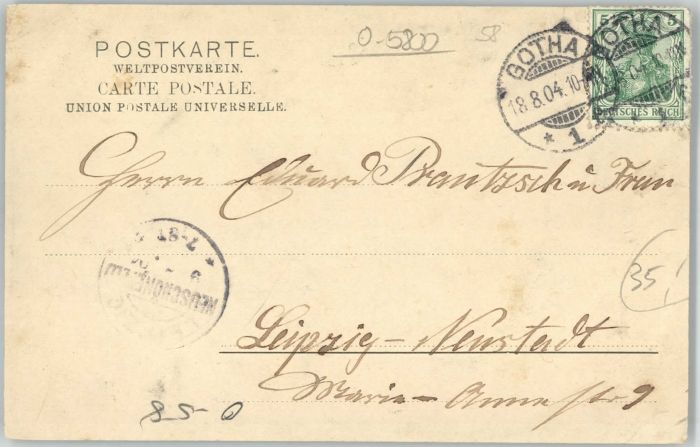 POSTKARTE.
WELTPOSTVEREIN.
CARTE POSTALE.
UNION POSTALE UNIVERSELLE.
0-5800
58
GOTHA
18.8.04.10-
* 1
GOTHA
5 5
DEUTSCHES REICH
Herrn Eduard Prautzsch u Frau
7-8T
35,
Leipzig-Neustadt
Marie-Annenstr 9
85-0